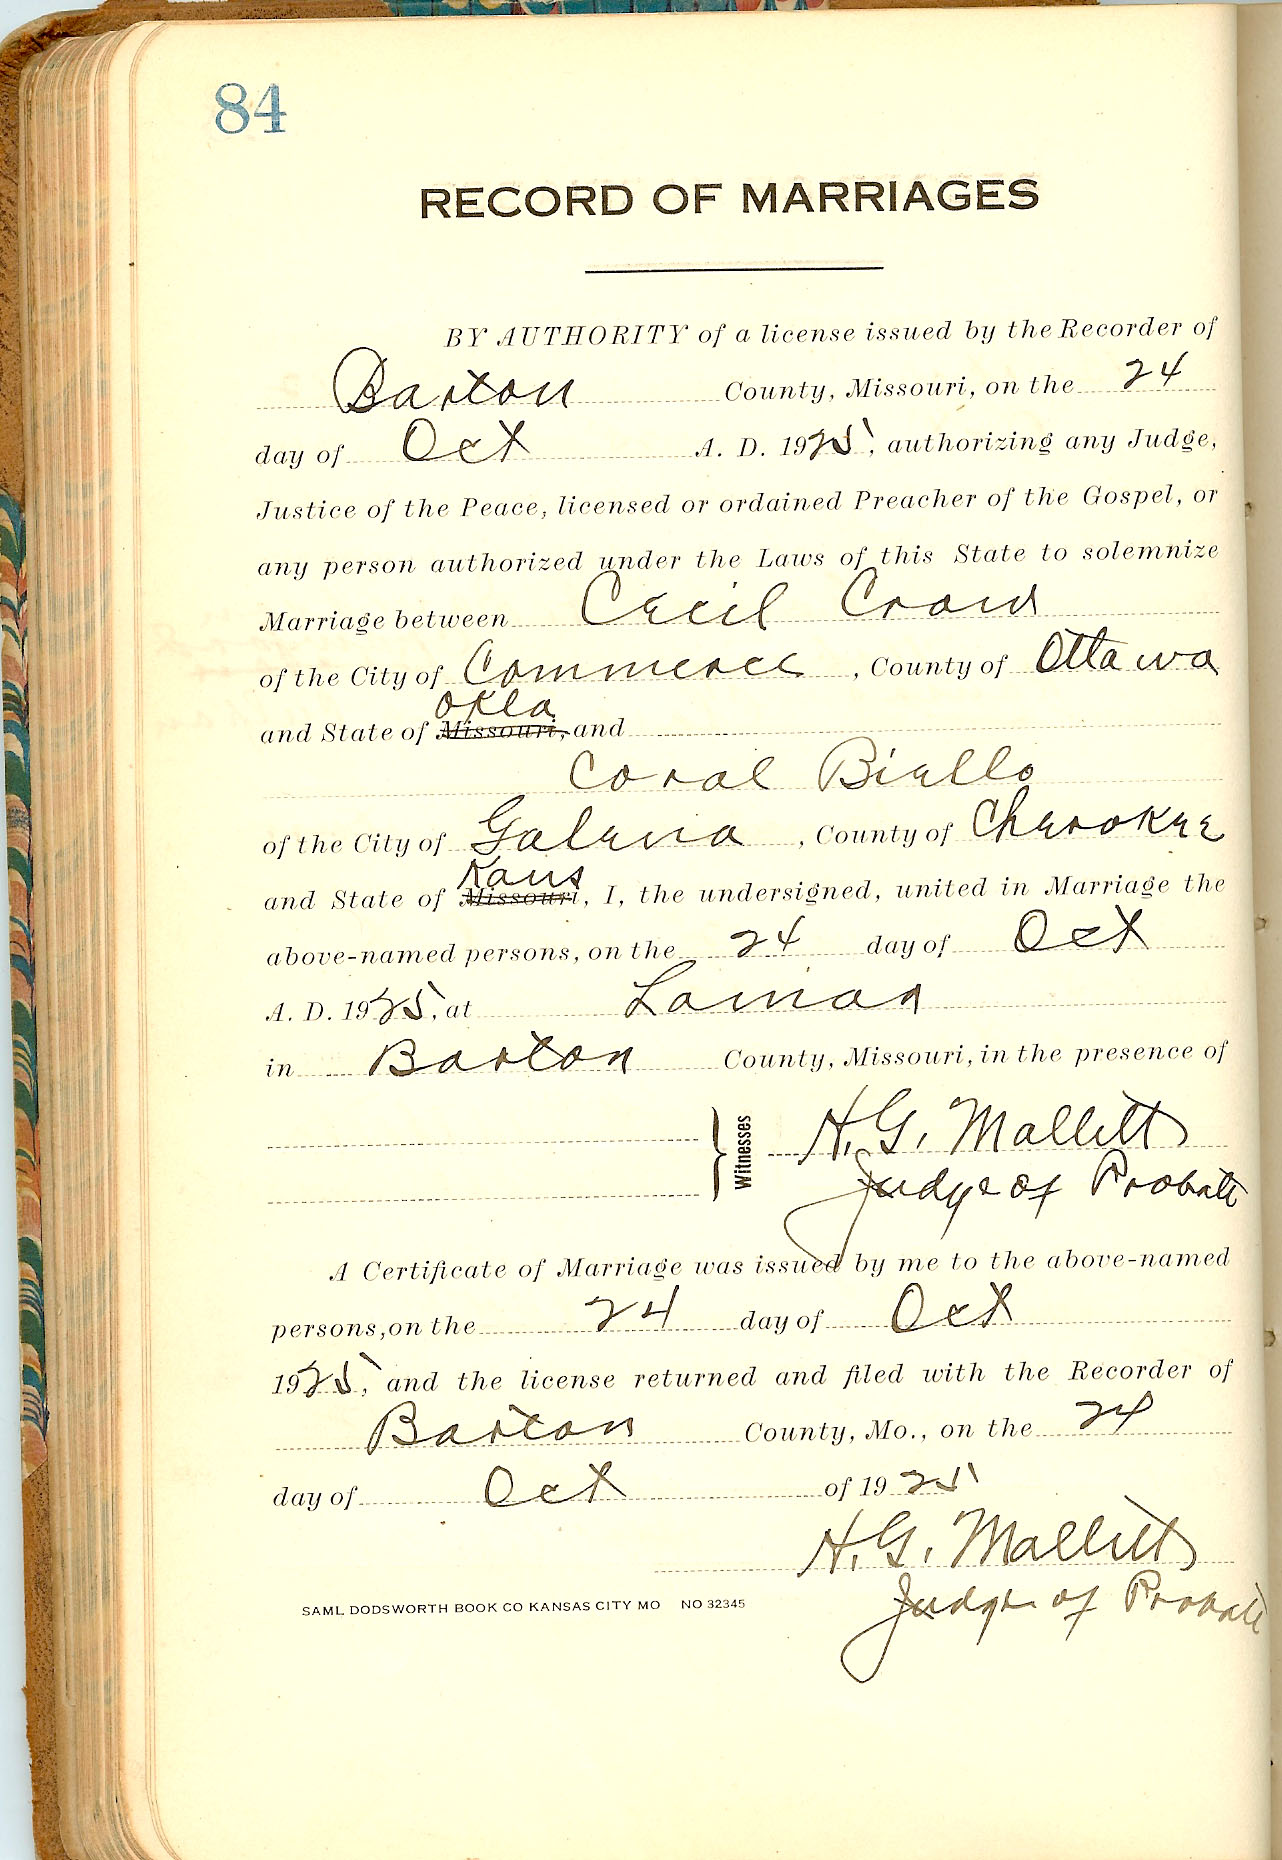 84
RECORD OF MARRIAGES
BY AUTHORITY of a license issued by the Recorder of
Barton County, Missouri, on the 24
day of Oct A. D. 1925, authorizing any Judge,
Justice of the Peace, licensed or ordained Preacher of the Gospel, or
any person authorized under the Laws of this State to solemnize
Marriage between Cecil Crow
of the City of Commerce, County of Ottawa
Okla
and State of Missouri, and
Coral Biello
of the City of Galena, County of Cherokee
Kans
and State of Missouri, I, the undersigned, united in Marriage the
above-named persons, on the 24 day of Oct
A. D. 1925, at Lamar
in Barton County, Missouri, in the presence of
Witnesses H. G. Mallitt
Judge of Probate
A Certificate of Marriage was issued by me to the above-named
persons, on the 24 day of Oct
1925, and the license returned and filed with the Recorder of
Barton County, Mo., on the 24
day of Oct of 1925
H. G. Mallitt
Judge of Probate
SAML DODSWORTH BOOK CO KANSAS CITY MO NO 32345